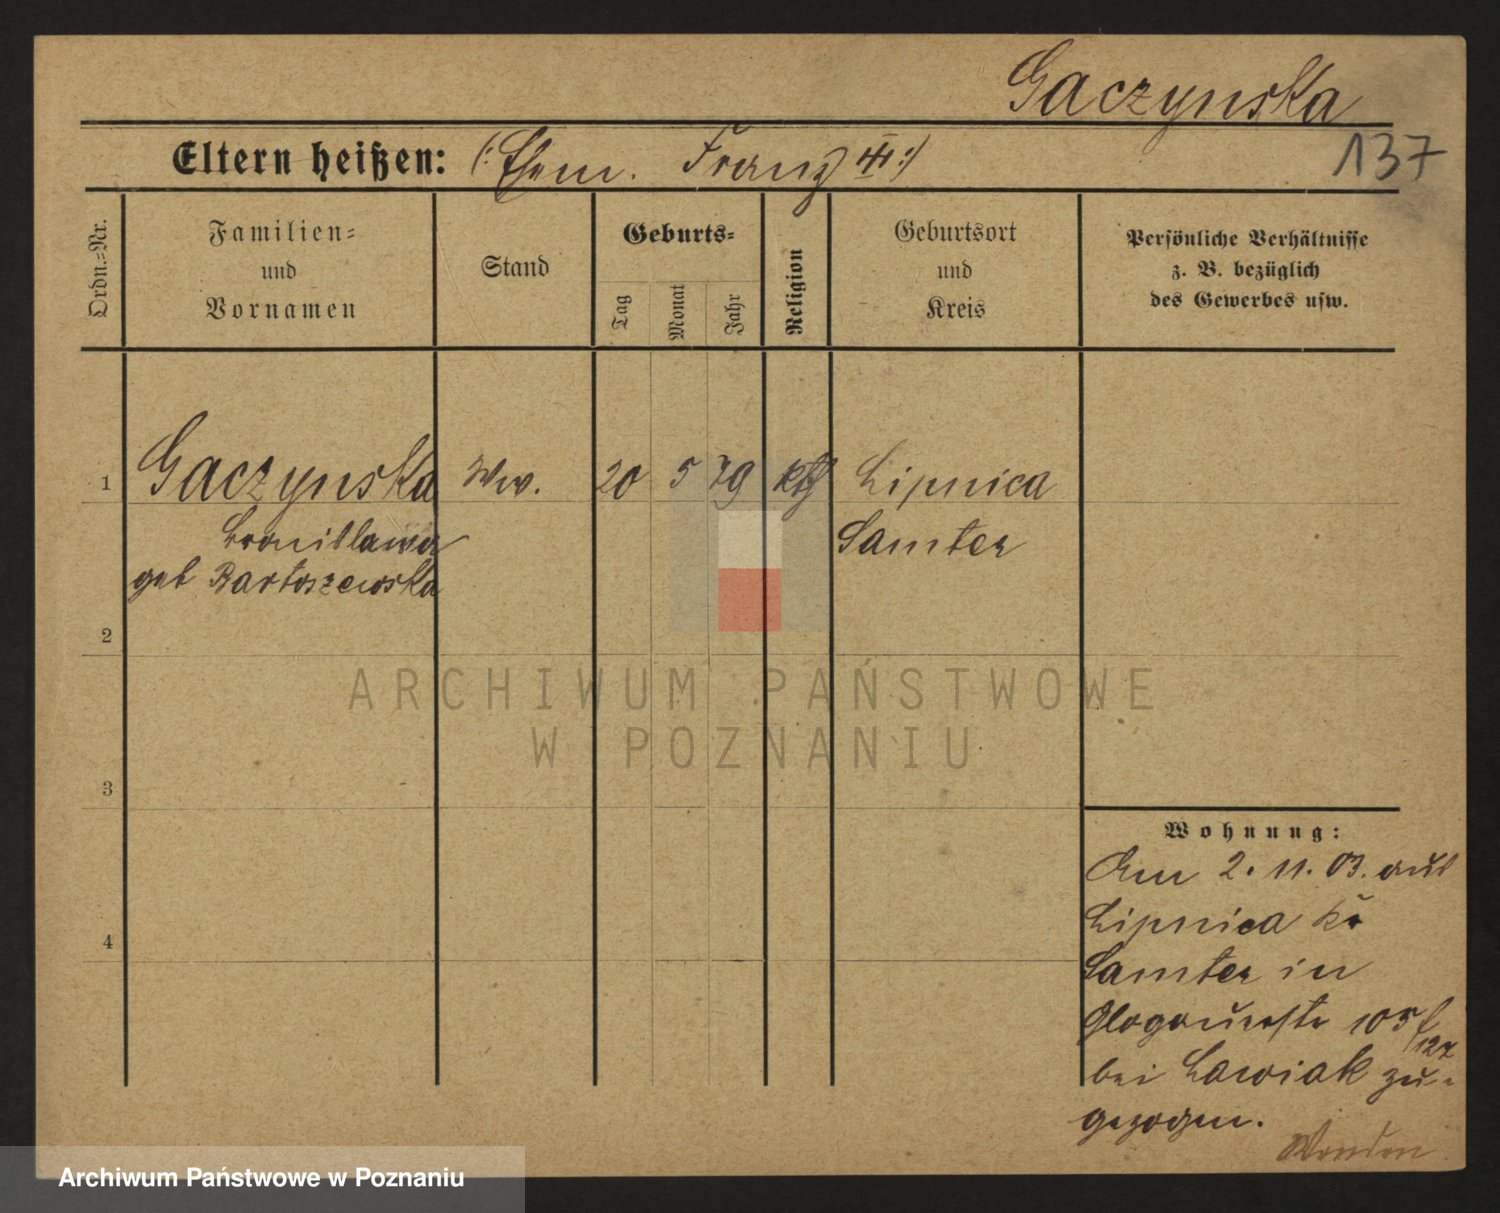 Gaczynska
137
Eltern heißen: (: Ehem. Franz III :)
Ordn.-Nr.
Familien-
und
Vornamen
Stand
Geburts-
Tag
Monat
Jahr
Religion
Geburtsort
und
Kreis
Persönliche Verhältnisse
z. B. bezüglich
des Gewerbes usw.
1 Gaczynska Ww. 20 5 79 kth Lipnica
Bronislawa Samter
geb Bartoszewska
2
3
4
Wohnung:
Am 2. 11. 03. aus
Lipnica Kr
Samter in
Glogauerstr 105
127
bei Lawiak zu-
gezogen.
ARCHIWUM PAŃSTWOWE
W POZNANIU
Archiwum Państwowe w Poznaniu